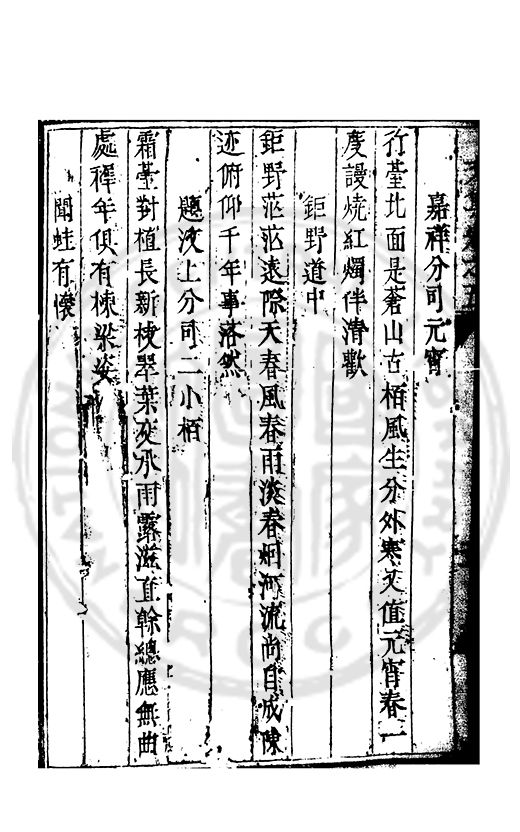 嘉祥分司元宵
行臺北面是蒼山古栢風生分外寒又值元宵春一
度謾燒紅燭伴清歡
鉅野道中
鉅野茫茫遠際天春風春雨淡春烟河流尚自成陳
迹俯仰千年事落然
題汶上分司二小栢
霜臺對植長新枝翠葉交承雨露滋直榦總應無曲
處稚年俱有棟梁姿
聞蛙有懷